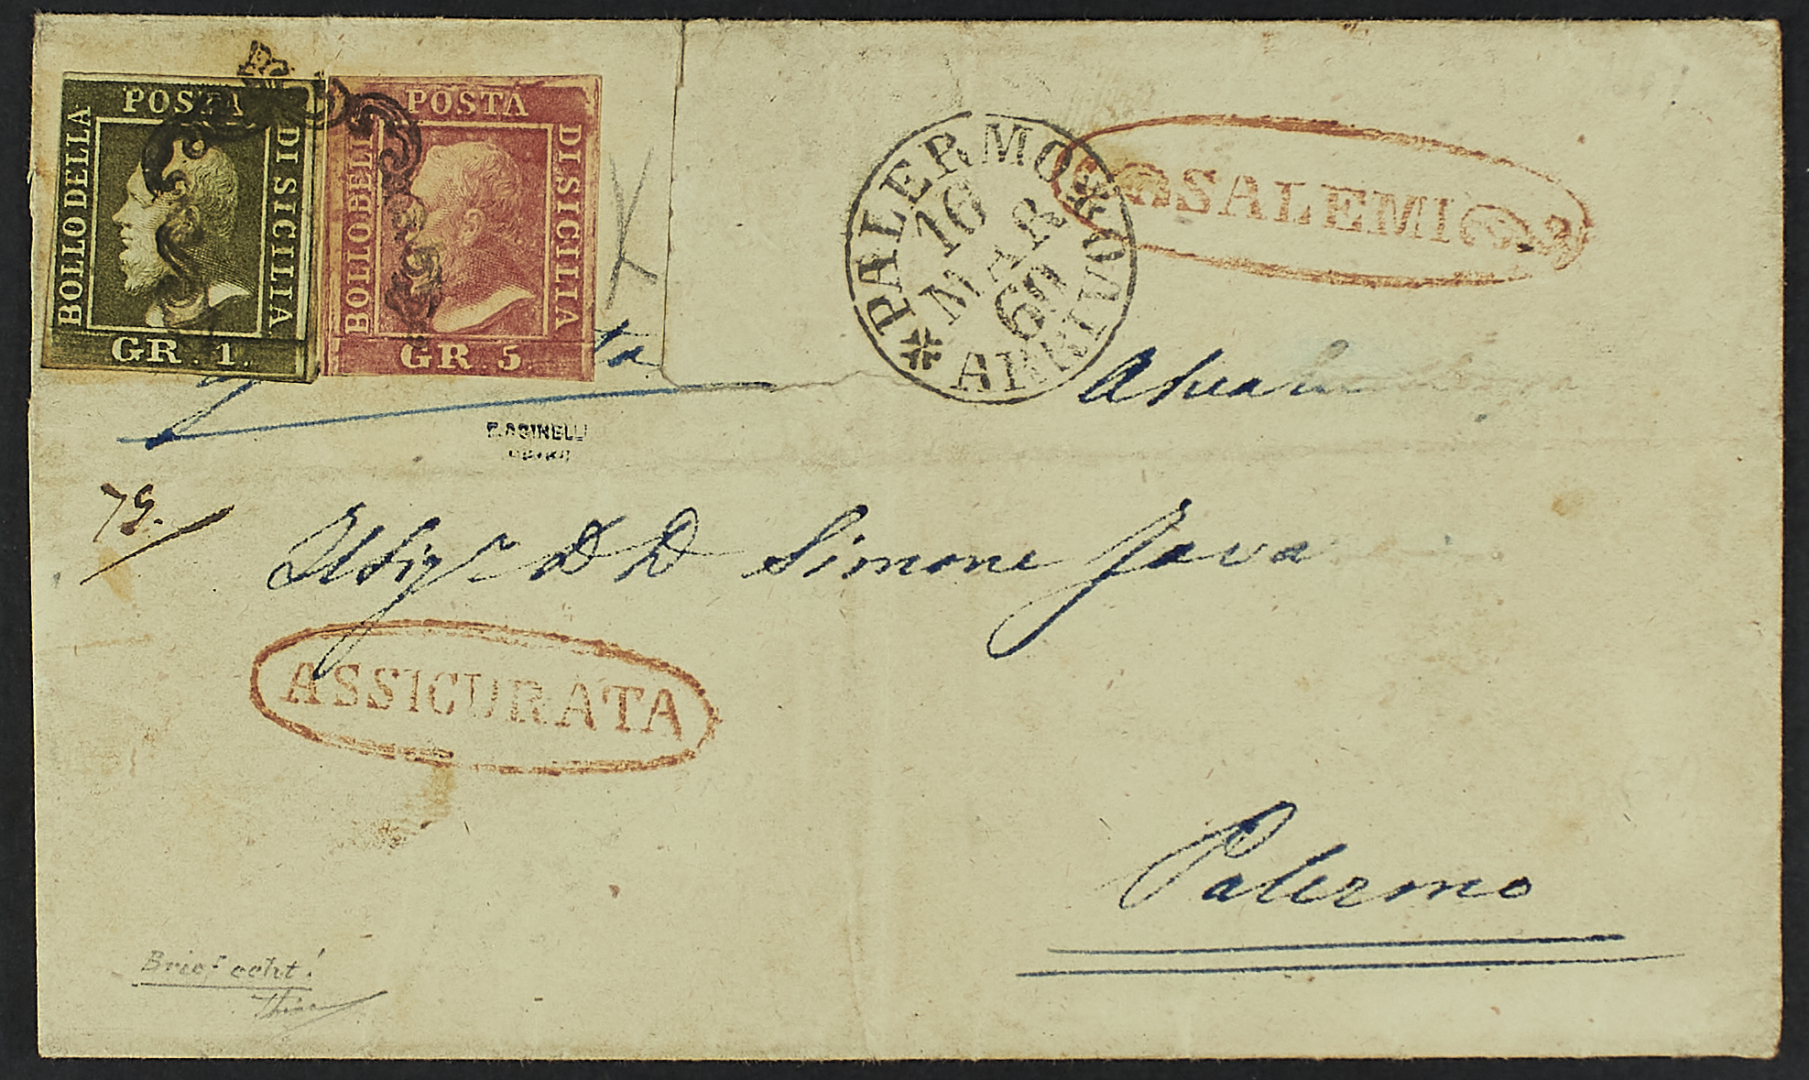 POSTA
BOLLO DELLA
DI SICILIA
GR. 1.
POSTA
BOLLO DELLA
DI SICILIA
GR. 5.
PALERMO
16
MAR
60
ARRIVO
SALEMI
E. ASINELLI
Il Sigr D D Simone
ASSICURATA
Palermo
Brief echt!